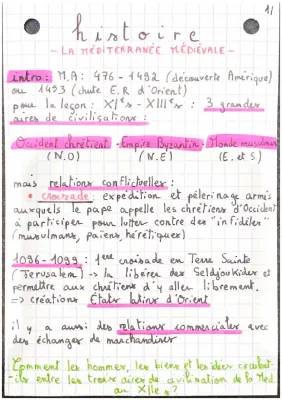 1/
histoire
- LA MÉDITERRANÉE MÉDIÉVALE -
intro : M.A : 476 - 1492 (découverte Amérique)
ou 1453 (chute E.R d'Orient)
pour la leçon : XIes - XIIIes : 3 grandes
aires de civilisations :
Occident chrétien - Empire Byzantin - Monde musulman
(N.O) (N.E) (E. et S)
mais relations conflictuelles :
• croisade : expédition et pélerinage armés
auxquels le pape appelle les chrétiens d'Occident
à participer pour lutter contre des "infidèles"
(musulmans, païens, hérétiques)
1096 - 1099 : 1ere croisade en Terre Sainte
(Jerusalem) -> la libérer des Seldjoukides et
permettre aux chrétiens d'y aller librement.
=> créations États latins d'Orient
il y a aussi des relations commerciales avec
des échanges de marchandises
Comment les hommes, les biens et les idées circulent-
ils entre les trois aires de civilisation de la Méd.
au XIIe s ?